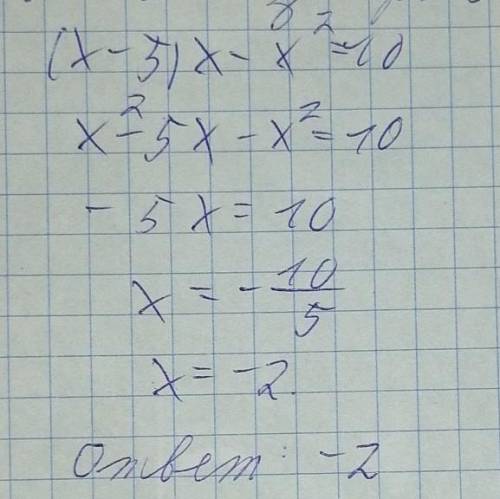 (x - 5)x - x² = 10
x² - 5x - x² = 10
- 5x = 10
x = - 10/5
x = -2.
Ответ: -2